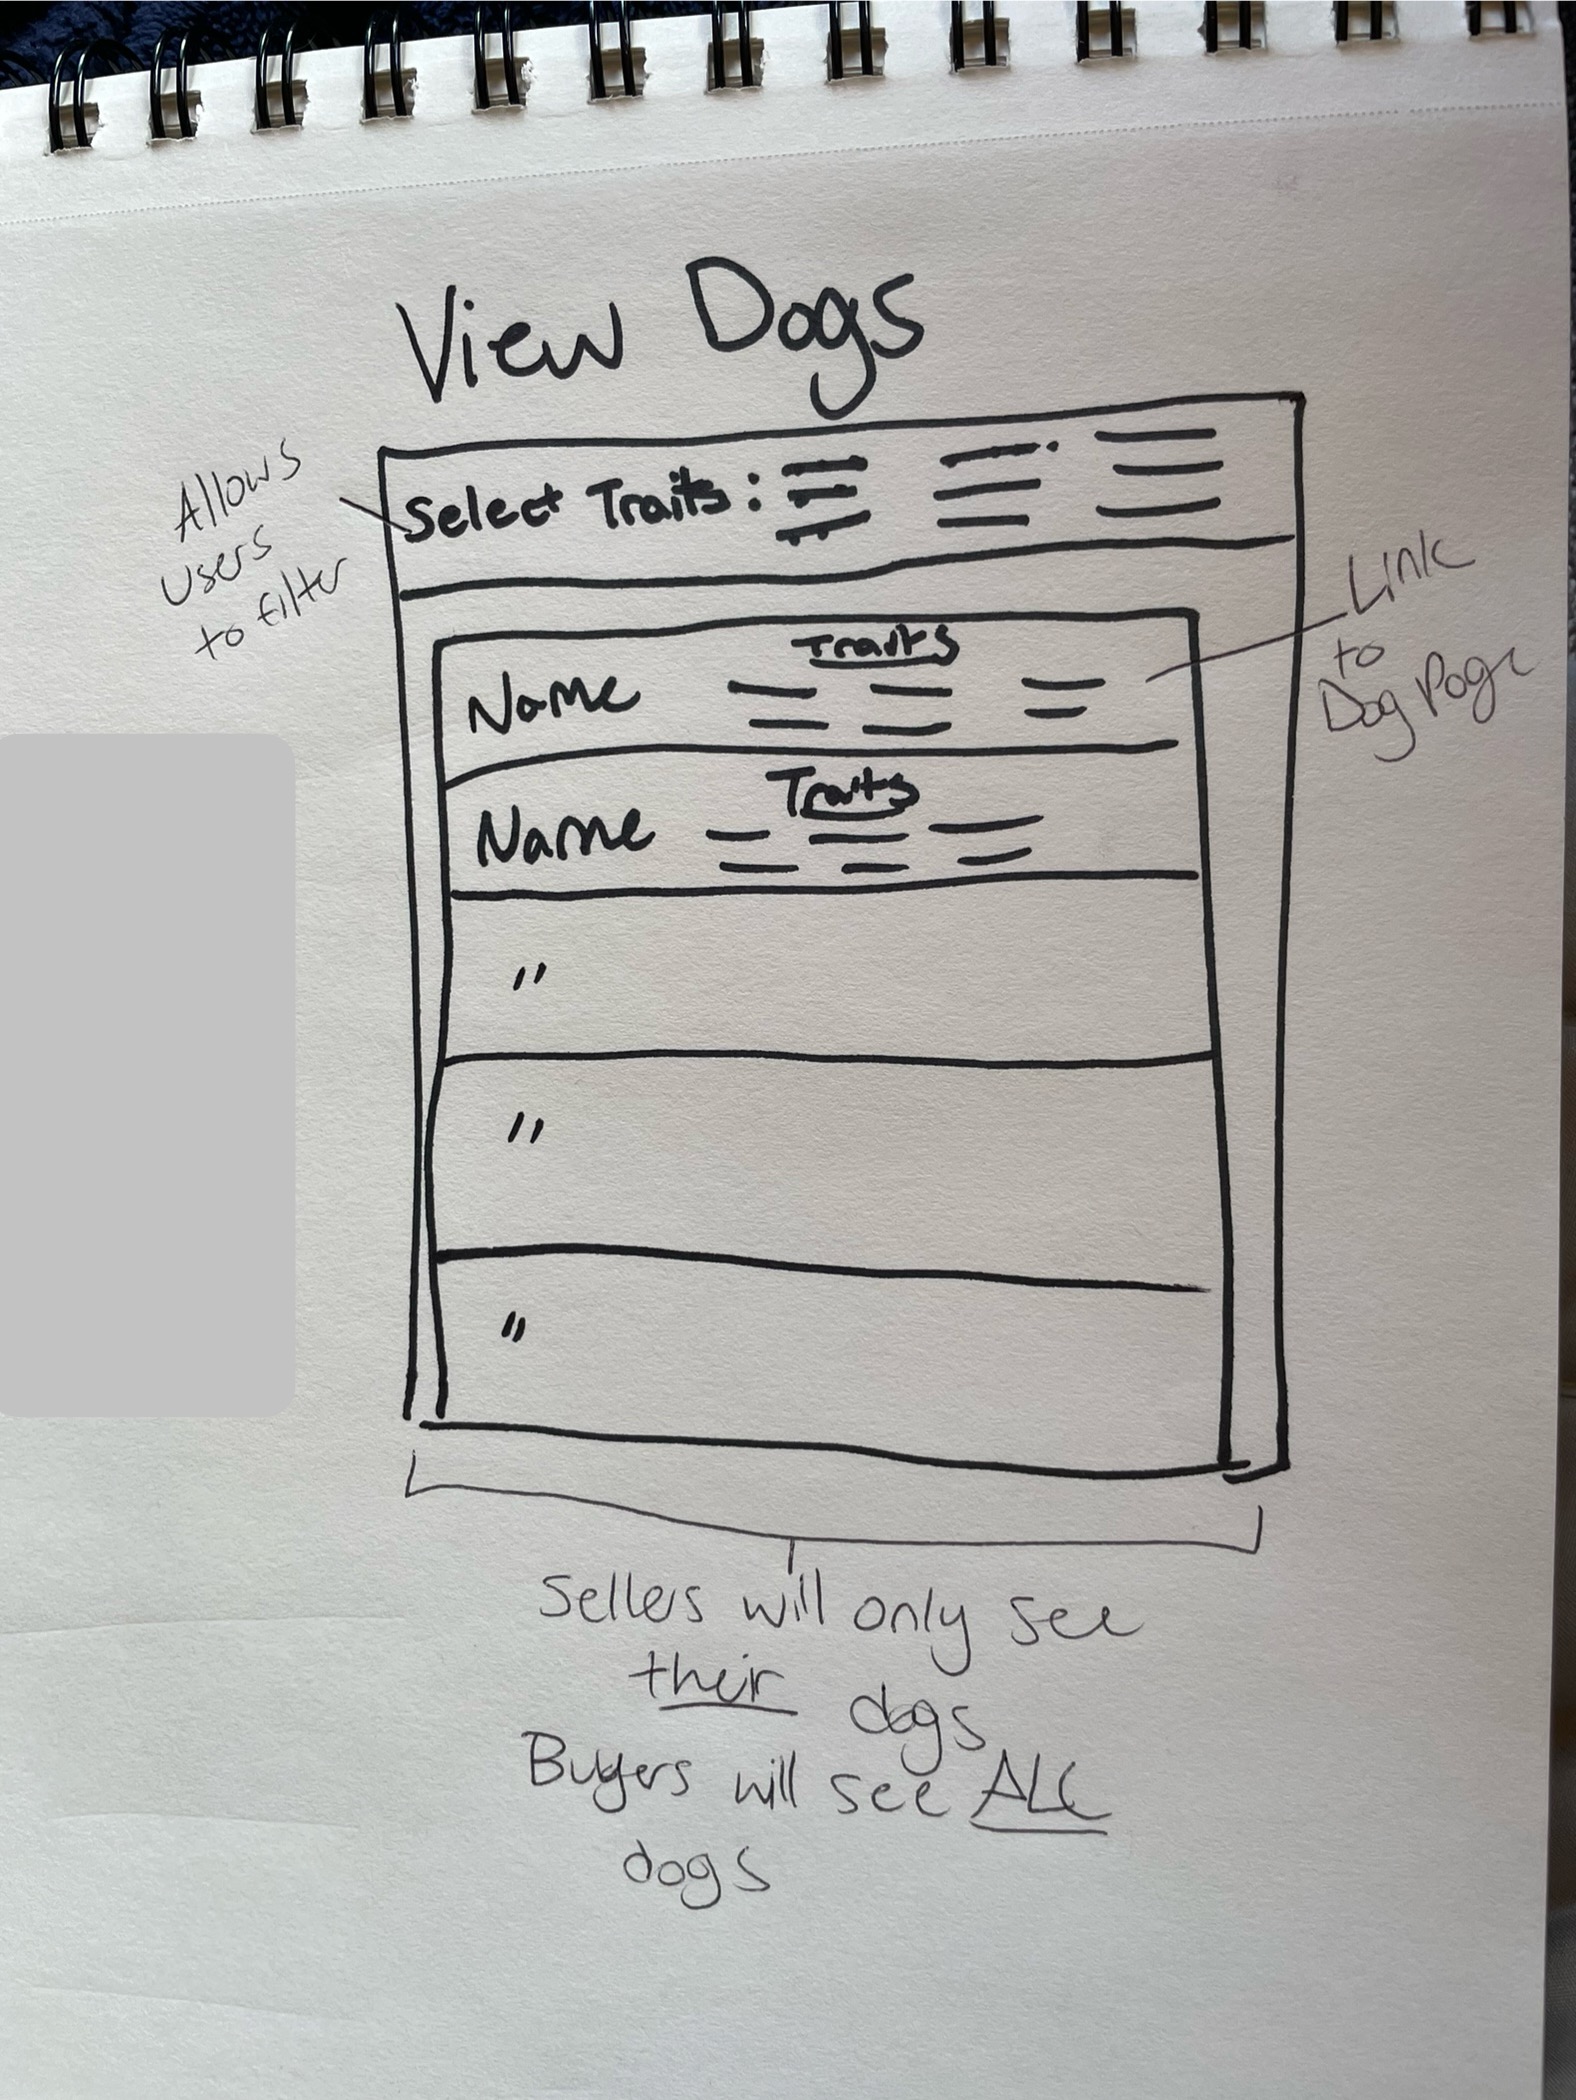 View Dogs
Allows
users
to filter
Select Traits:
Link
to
Dog Page
Traits
Name
Traits
Name
"
"
"
Sellers will only see
their dogs
Buyers will see ALL
dogs